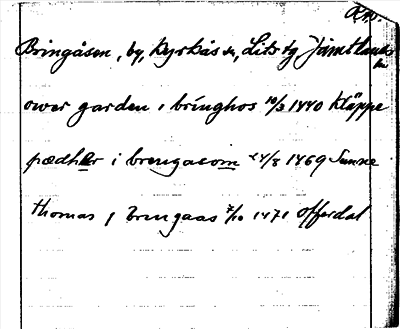 Bringåsen, by, Kyrkås sn, Lits tg Jämtlands
ln
owær garden i bringhos 10/3 1440 Kläppe
pædher i brengasom 24/8 1469 Sunne
thomas j bringaas 7/10 1471 Offerdal